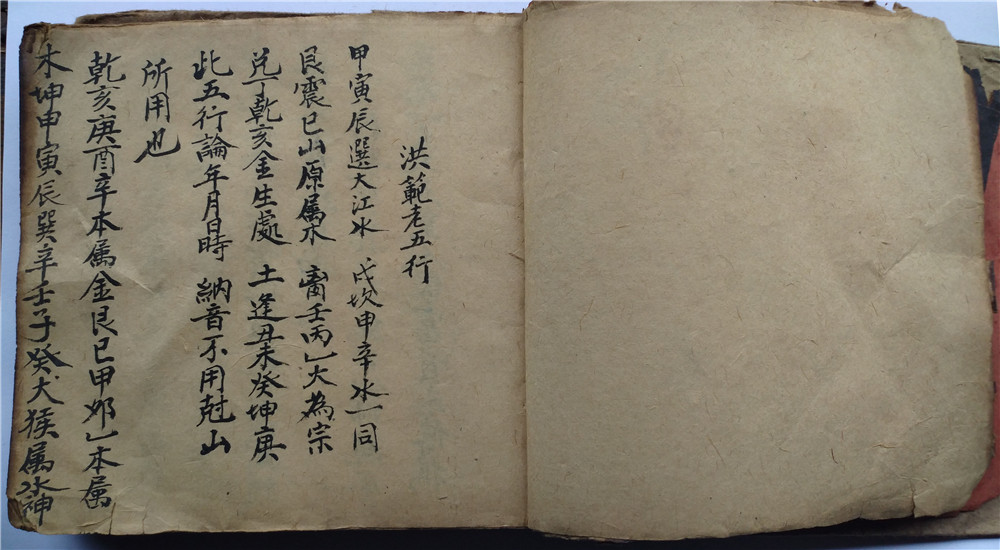 洪範老五行
甲寅辰選大江水 戌坎申辛水一同
艮震巳山原属木 离壬丙乙火為宗
兑丁乾亥金生處 土逢丑未癸坤庚
此五行論年月日時 納音不用尅山
所用也
乾亥庚酉辛本属金艮巳甲卯乙本属
木坤申寅辰巽辛壬子癸犬猴属水神